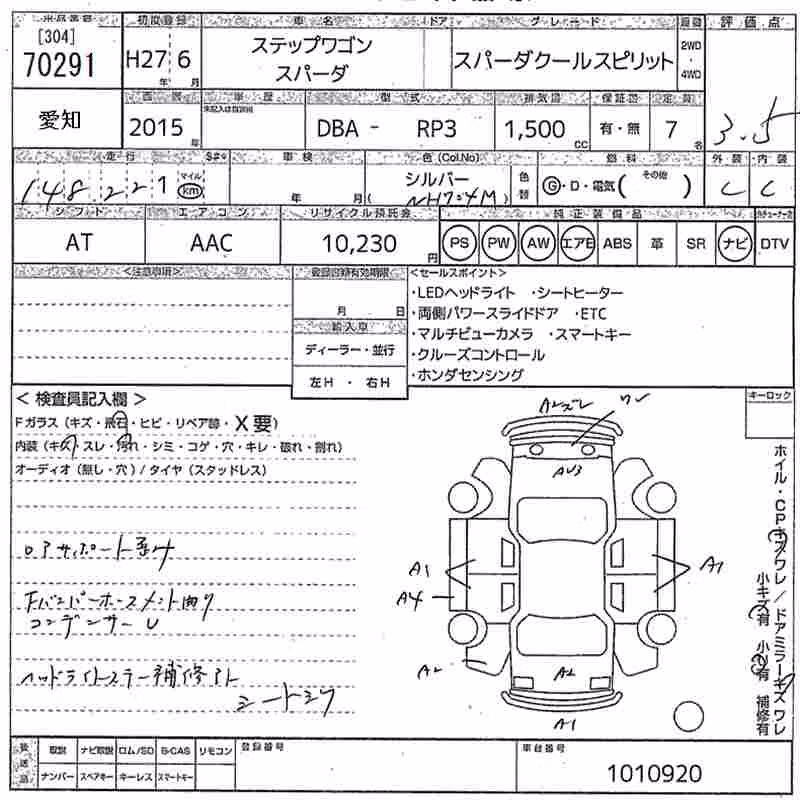 出品番号 初度登録 車名 ドア グレード 駆動 評価点
[304]
70291 H27年 6月 ステップワゴン スパーダ スパーダクールスピリット 2WD・4WD 3.5
愛知 西暦 車歴 型式 排気量 保証書 定員
2015年 未記入は自家用 DBA - RP3 1,500cc 有・無 7名
走行 車検 色(Col.No) 燃料 外装 内装
148221 マイル km 年 月 シルバー (NH704M) 色替 G・D・電気( その他 ) C C
シフト エアコン リサイクル預託金 純正装備品
AT AAC 10,230円 PS PW AW エアB ABS 革 SR ナビ DTV
<注意事項> 登録書類有効期限 <セールスポイント>
月 日
・LEDヘッドライト ・シートヒーター
・両側パワースライドドア ・ETC
・マルチビューカメラ ・スマートキー
・クルーズコントロール
・ホンダセンシング
輸入車
ディーラー・並行
左H ・ 右H
<検査員記入欄>
Fガラス(キズ・飛石・ヒビ・リペア跡・X要)
内装(キズ・スレ・汚れ・シミ・コゲ・穴・キレ・破れ・割れ)
オーディオ(無し・穴)/タイヤ(スタッドレス)
ロアサポート歪み
Fバンパーホースメント曲り
コンデンサーU
ヘッドライトステー補修アト
シートシワ
キーロック
A2ズレ ワレ
AU3
A1 A1
A4
A2 A2
A1
ホイル・CPキズワレ/ドアミラーキズワレ
小キズ有 小凹有 補修有
後送品 取説 ナビ取説 ロム/SD B-CAS リモコン 登録番号 車台番号
ナンバー スペアキー キーレス スマートキー
1010920